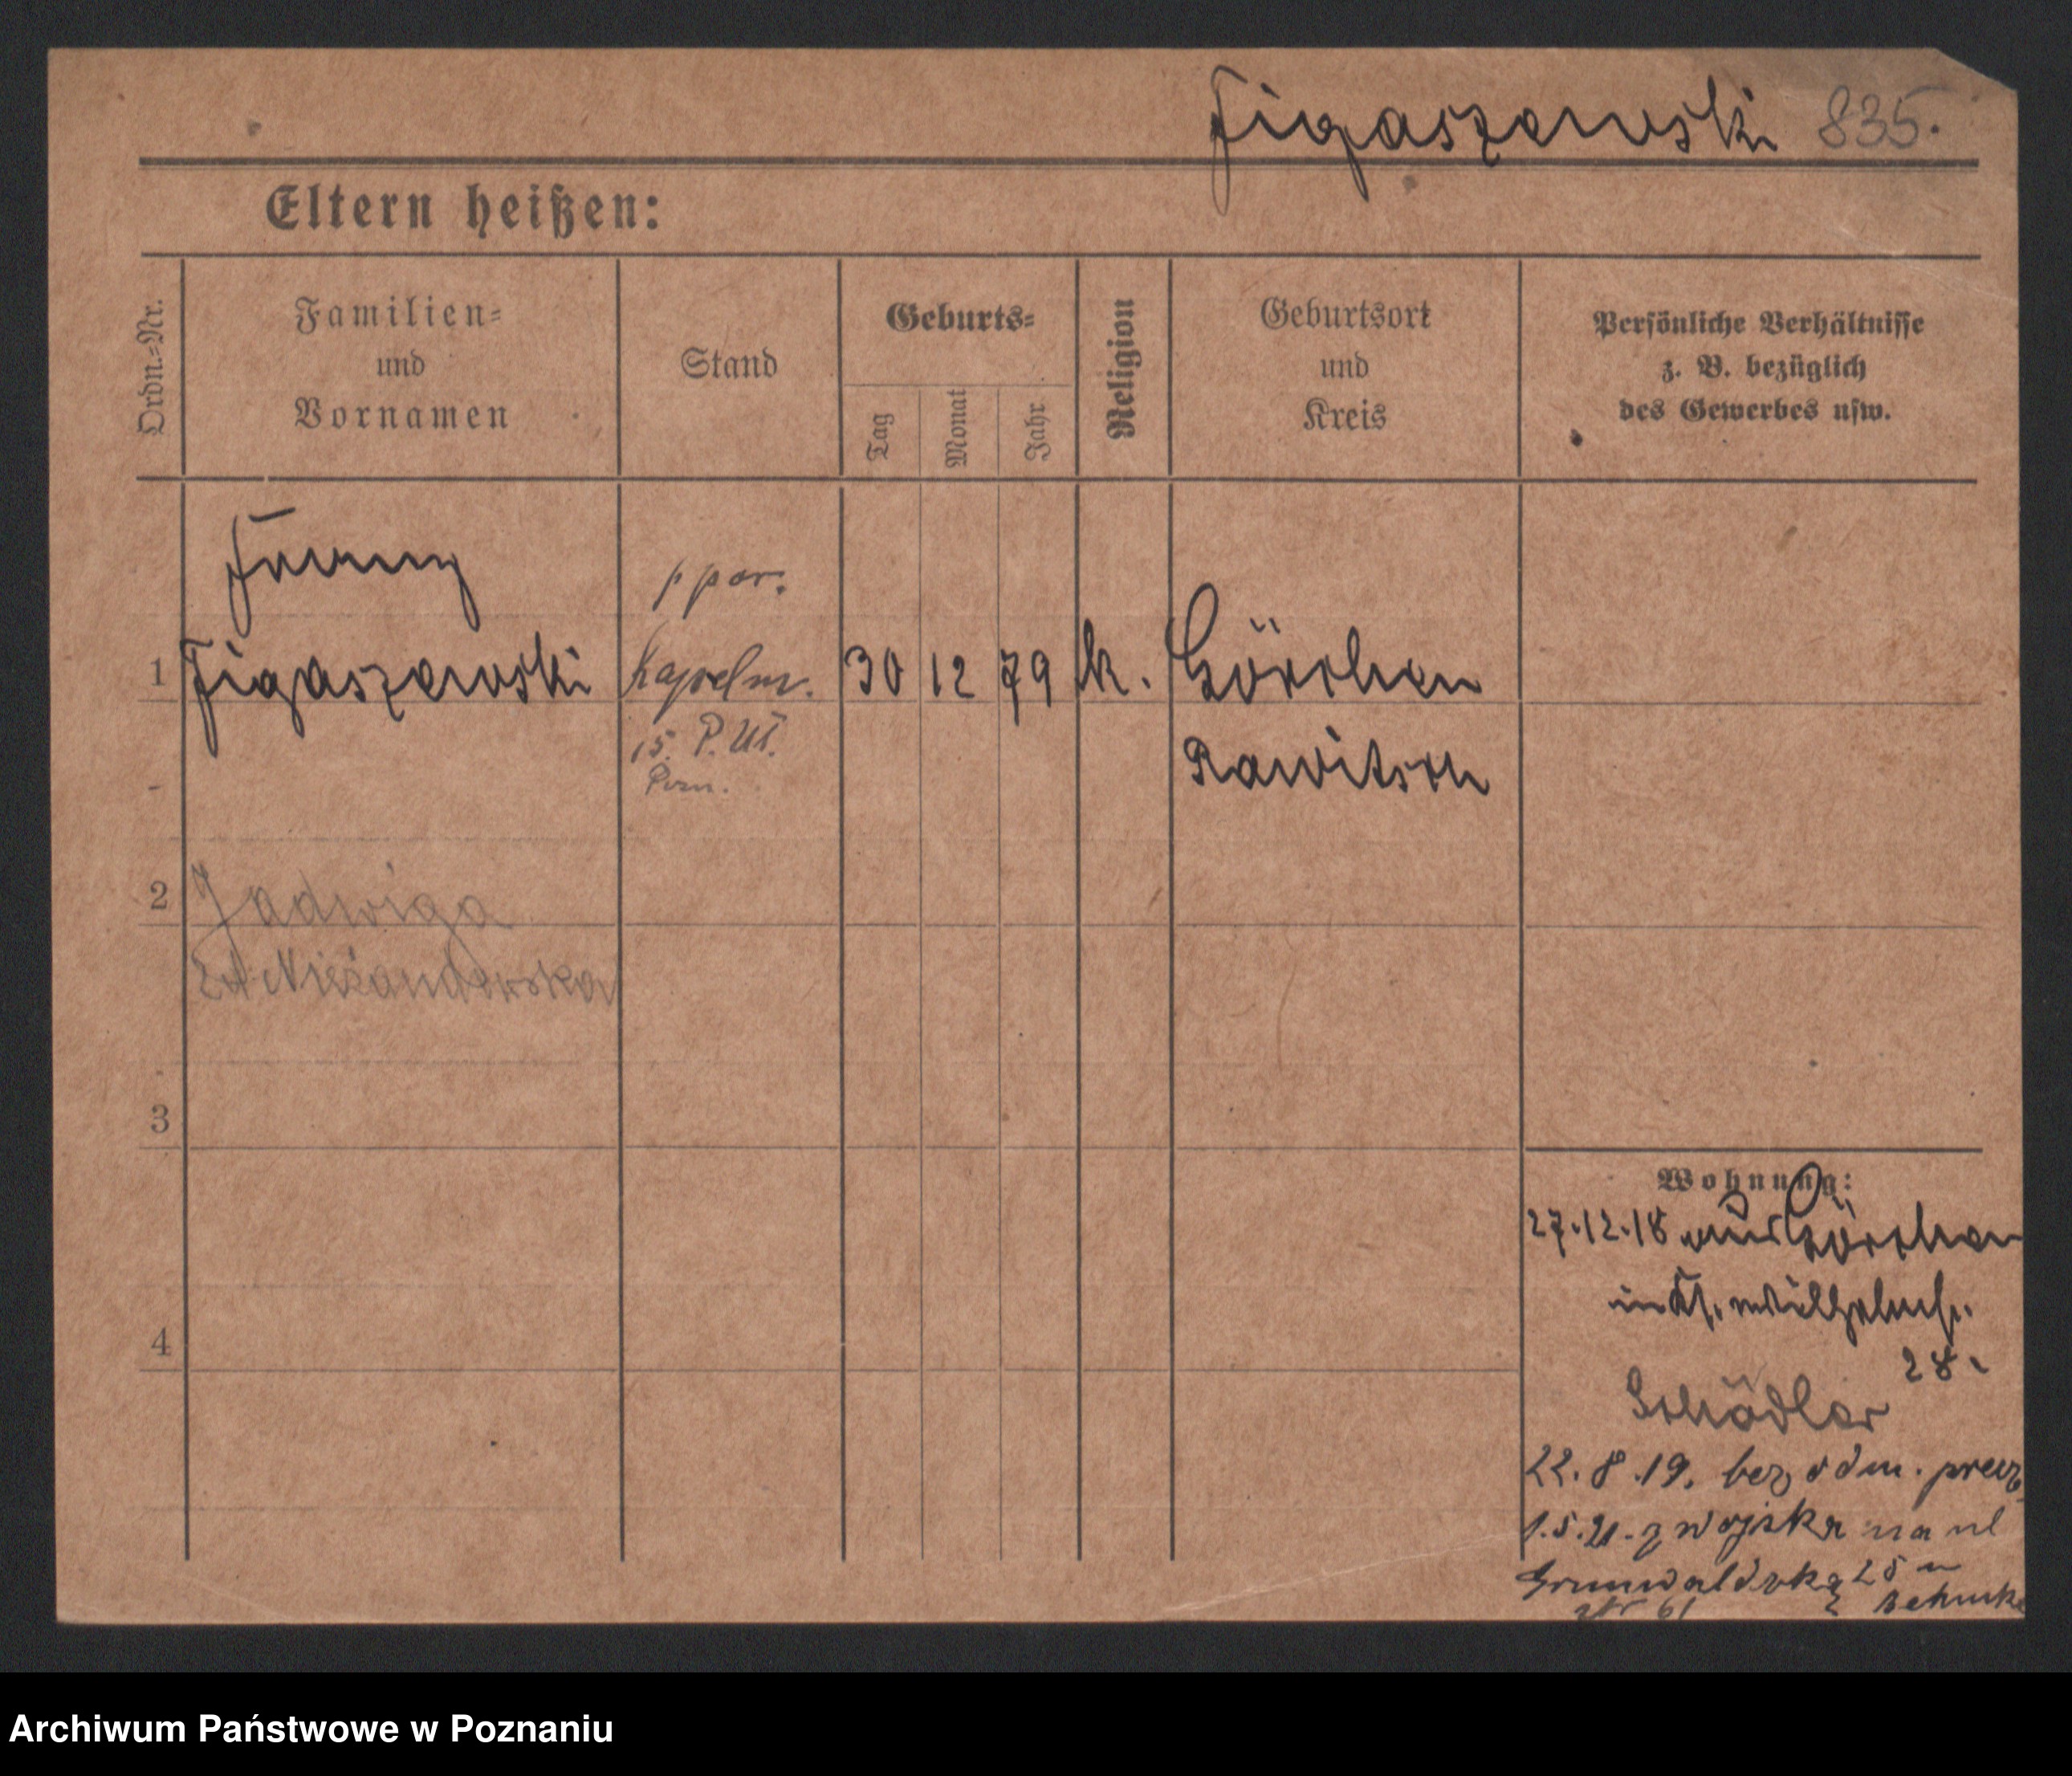 Figaszewski 835.
Eltern heißen:
Ordn.-Nr.
Familien-
und
Vornamen
Stand
Geburts-
Tag
Monat
Jahr
Religion
Geburtsort
und
Kreis
Persönliche Verhältnisse
z. B. bezüglich
des Gewerbes usw.
Franz
ppor.
1 Figaszewski Kapelm. 30 12 79 k. Görchen
15. P. Uł.
Pozn.
Rawitsch
2 Jadwiga
3
4
Wohnung:
27.12.18 aus Görchen
in Wilhelmst.
28.
Schädler
22.8.19. bez odm.
1.5.21. z wojska na ul
Grunwaldzką 25 u